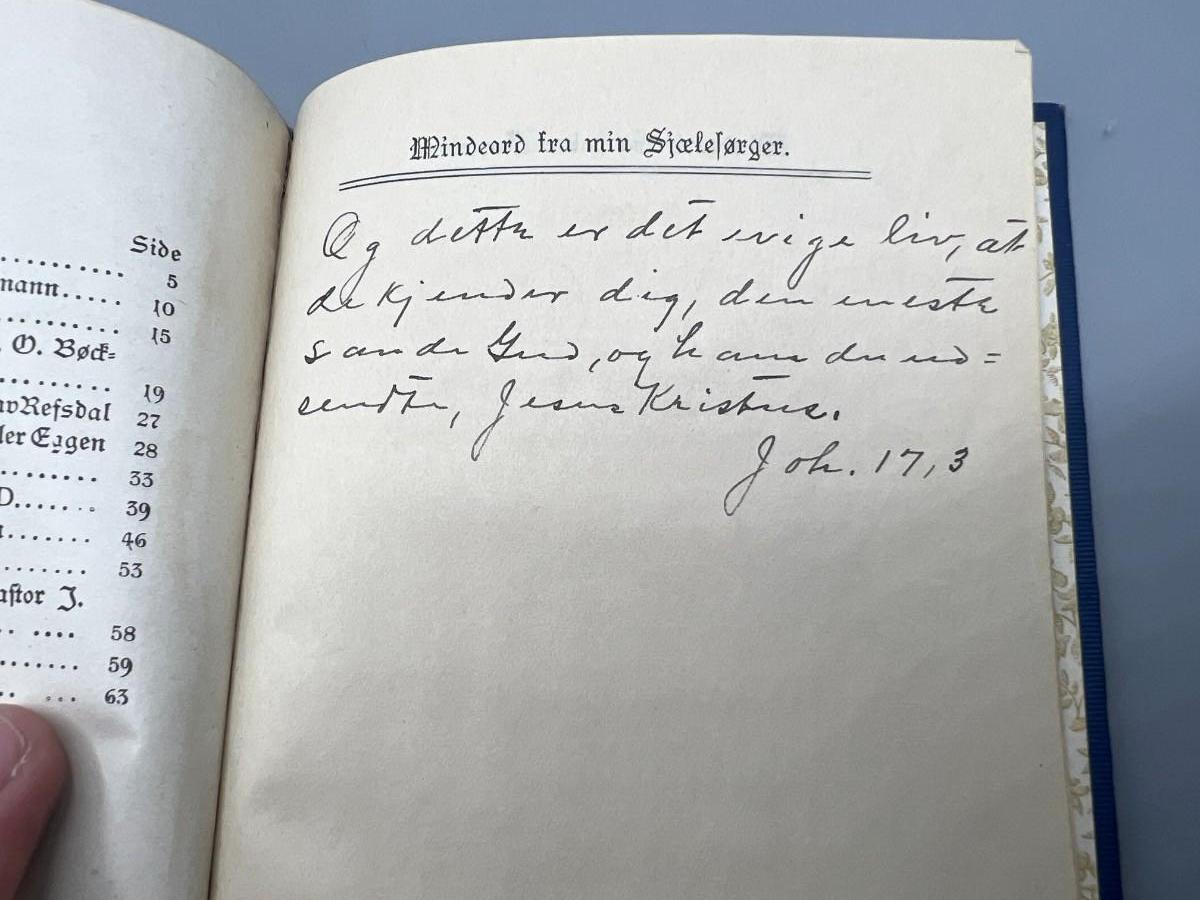 Side
5
mann..... 10
15
O. Bøck=
19
Refsdal 27
ler Eggen 28
33
D....... 39
46
53
astor J.
58
59
63
Mindeord fra min Sjælesørger.
Og dette er det evige liv, at
de kjender dig, den eneste
sande Gud, og ham du ud=
sendte, Jesus Kristus.
Joh. 17,3